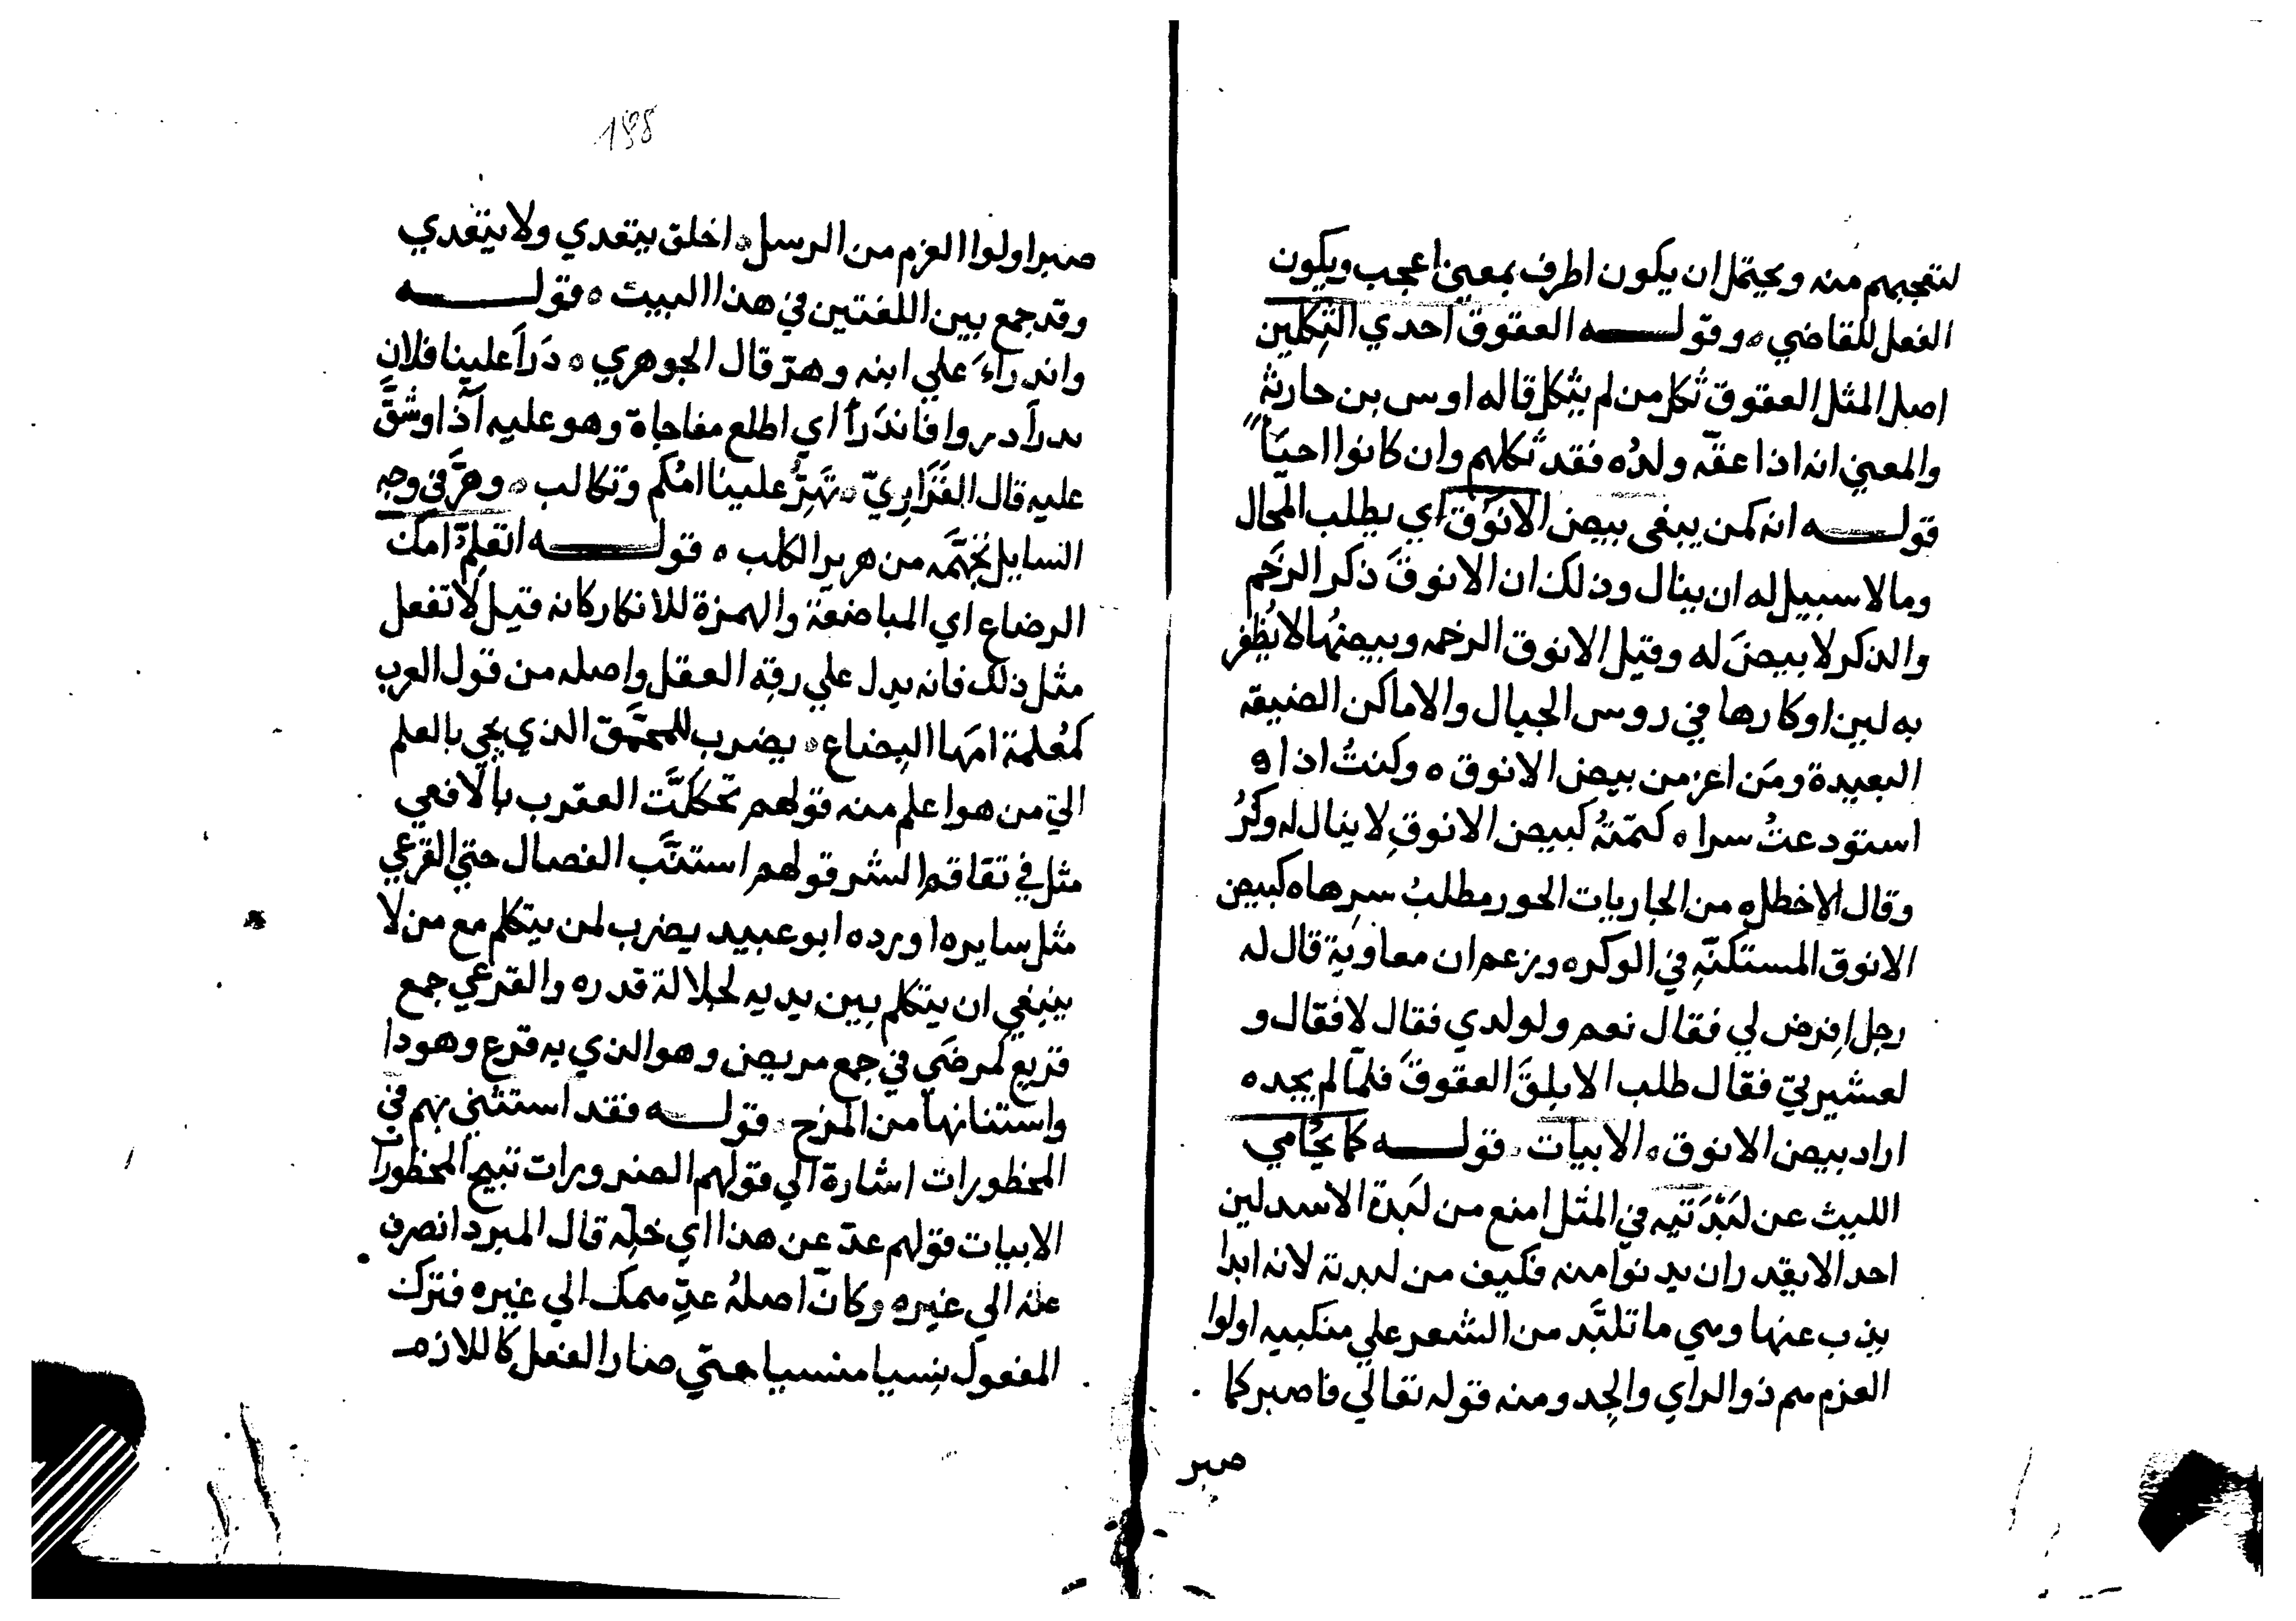 لتعجبهم منه ويحتمل ان يكون اطرف بمعني اعجب ويكون
الفعل للقاضي ه وقولــــه العقوق احدي الثكلين
اصل المثل العقوق ثكل من لم يثكل قاله اوس بن حارثة
والمعني انه اذا عقّه ولدُه فقد ثكلهم وان كانوا احيَاً
قولــــه انه كمن يبغي بيض الانوَق اي يطلب المحال
وما لا سبيل له ان ينال وذلك ان الانوقَ ذكر الرخَم
والذكر لا بيضَ له وقيل الانوق الرخمه وبيضهُا لا يُظفر
به لبين اوكارها في روس الجبال والاماكن الضيقة
البعيدة ومَن اعز من بيض الانوق ه وكنتُ اذا ه
استودعتُ سرا ه كتمّتهُ كبيض الانوقِ لا ينال له وكرُ
وقال الاخطل ه من الجاريات الحور مطلبُ سرِها ه كبيض
الانوق المستكنّهِ في الوكره ويزعم ان معاويَة قال له
رجل افرض لي فقال نعم ولولدي فقال لا فقال و
لعشيرتي فقال طلب الابلقَ العقوقَ فلمّا لم يجده
اراد بيض الانوق ه الابيات ه قولــــه كما يُحامي
الليث عن لبدَتيه في المثل امنع من لبَدة الاسد لين
احدا لا يقدر ان يدنوا منه فكيف من لبدتة لانه ابدا
يذب عنها وهي ما تلبَّد من الشعر علي منكبيه اولوا
العزم هم ذوا الراي والجِد ومنه قوله تعالي فاصبر كما
صبر
188
صبر اولوا العزم من الرسل ه اخلق يتعدي ولا يتعدي
وقد جمع بين اللغتين في هذا البيت ه قولــــه
واندراءَ علي ابنه وهرّ قال الجوهري ه دَرأَ علينا فلان
يدرأ دروا فاندَرأ اي اطلع مفاجاة وهو عليه آذا وشقَّ
عليه قال الفَزَارِيّ ه تهَرُّ علينا امُكم وتكالب ه وهرَّ في وجه
السايل تجهّمَه من هرير الكلب ه قولــــه اتعلِمّة امك
الرضاع اي المباضعَة والهمزة للانكار كانه قيل لا تفعل
مثل ذلك فانه يدل علي رقِه العقل واصله من قول العرب
كمُعلمة امَها البِضاع ه يضرب للمحمَّق الذي يجي بالعلم
الي من هو اعلم منه قولهم تحكّكَت العقرب بالافعي
مثل في تفاقم الشر قولهم استنَّب الفصال حتي القرعَي
مثل سايره اورده ابو عبيد يضرب لمن يتكلم مع من لا
ينبغي ان يتكلم بين يديه لجلالة قدره والقرعي جمع
قزيع كمرضَي في جمع مريض وهو الذي به قرع وهو دا
واستنانها من المزح ه قولــــه فقد استثني بهم في
المحظورات اشارة الي قولهم الضرورات تبيح المحظورات
الابيات قولهم عد عن هذا اي خلّه قال المبرد انصرف
عنه الي غيره وكان اصلهُ عدّ همك الي غيره فترك
المفعول نِسيا منسيا حتي صار الفعل كاللازم